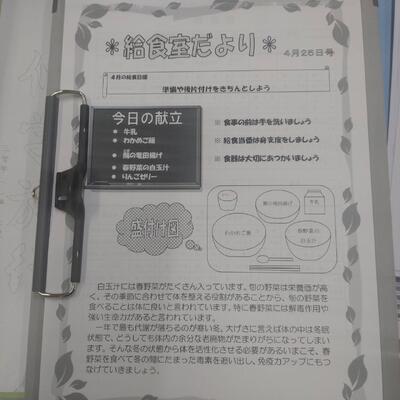 ＊給食室だより＊
4月25日号
4月の給食目標
準備や後片付けをきちんとしよう
今日の献立
● 牛乳
● わかめご飯
● 鯖の竜田揚げ
● 春野菜の白玉汁
● りんごゼリー
※ 食事の前は手を洗いましょう
※ 給食当番は身支度をしましょう
※ 食器は大切にあつかいましょう
盛付け図
鯖の竜田揚げ
牛乳
わかめご飯
春野菜の
白玉汁
白玉汁には春野菜がたくさん入っています。旬の野菜は栄養価が高
く、その季節に合わせて体を整える役割があることから、旬の野菜を
食べることは体に良いと言われています。特に春野菜には解毒作用や
強い生命力があると言われています。
一年で最も代謝が落ちるのが寒い冬。大げさに言えば体の中は冬眠
状態で、どうしても体内の余分な老廃物がたまりがちになってしまい
ます。そんな冬の状態から体を活性化させる必要があるいまこそ、春
野菜を食べて冬の間にたまった毒素を追い出し、免疫力アップにもつ
なげていきましょう。